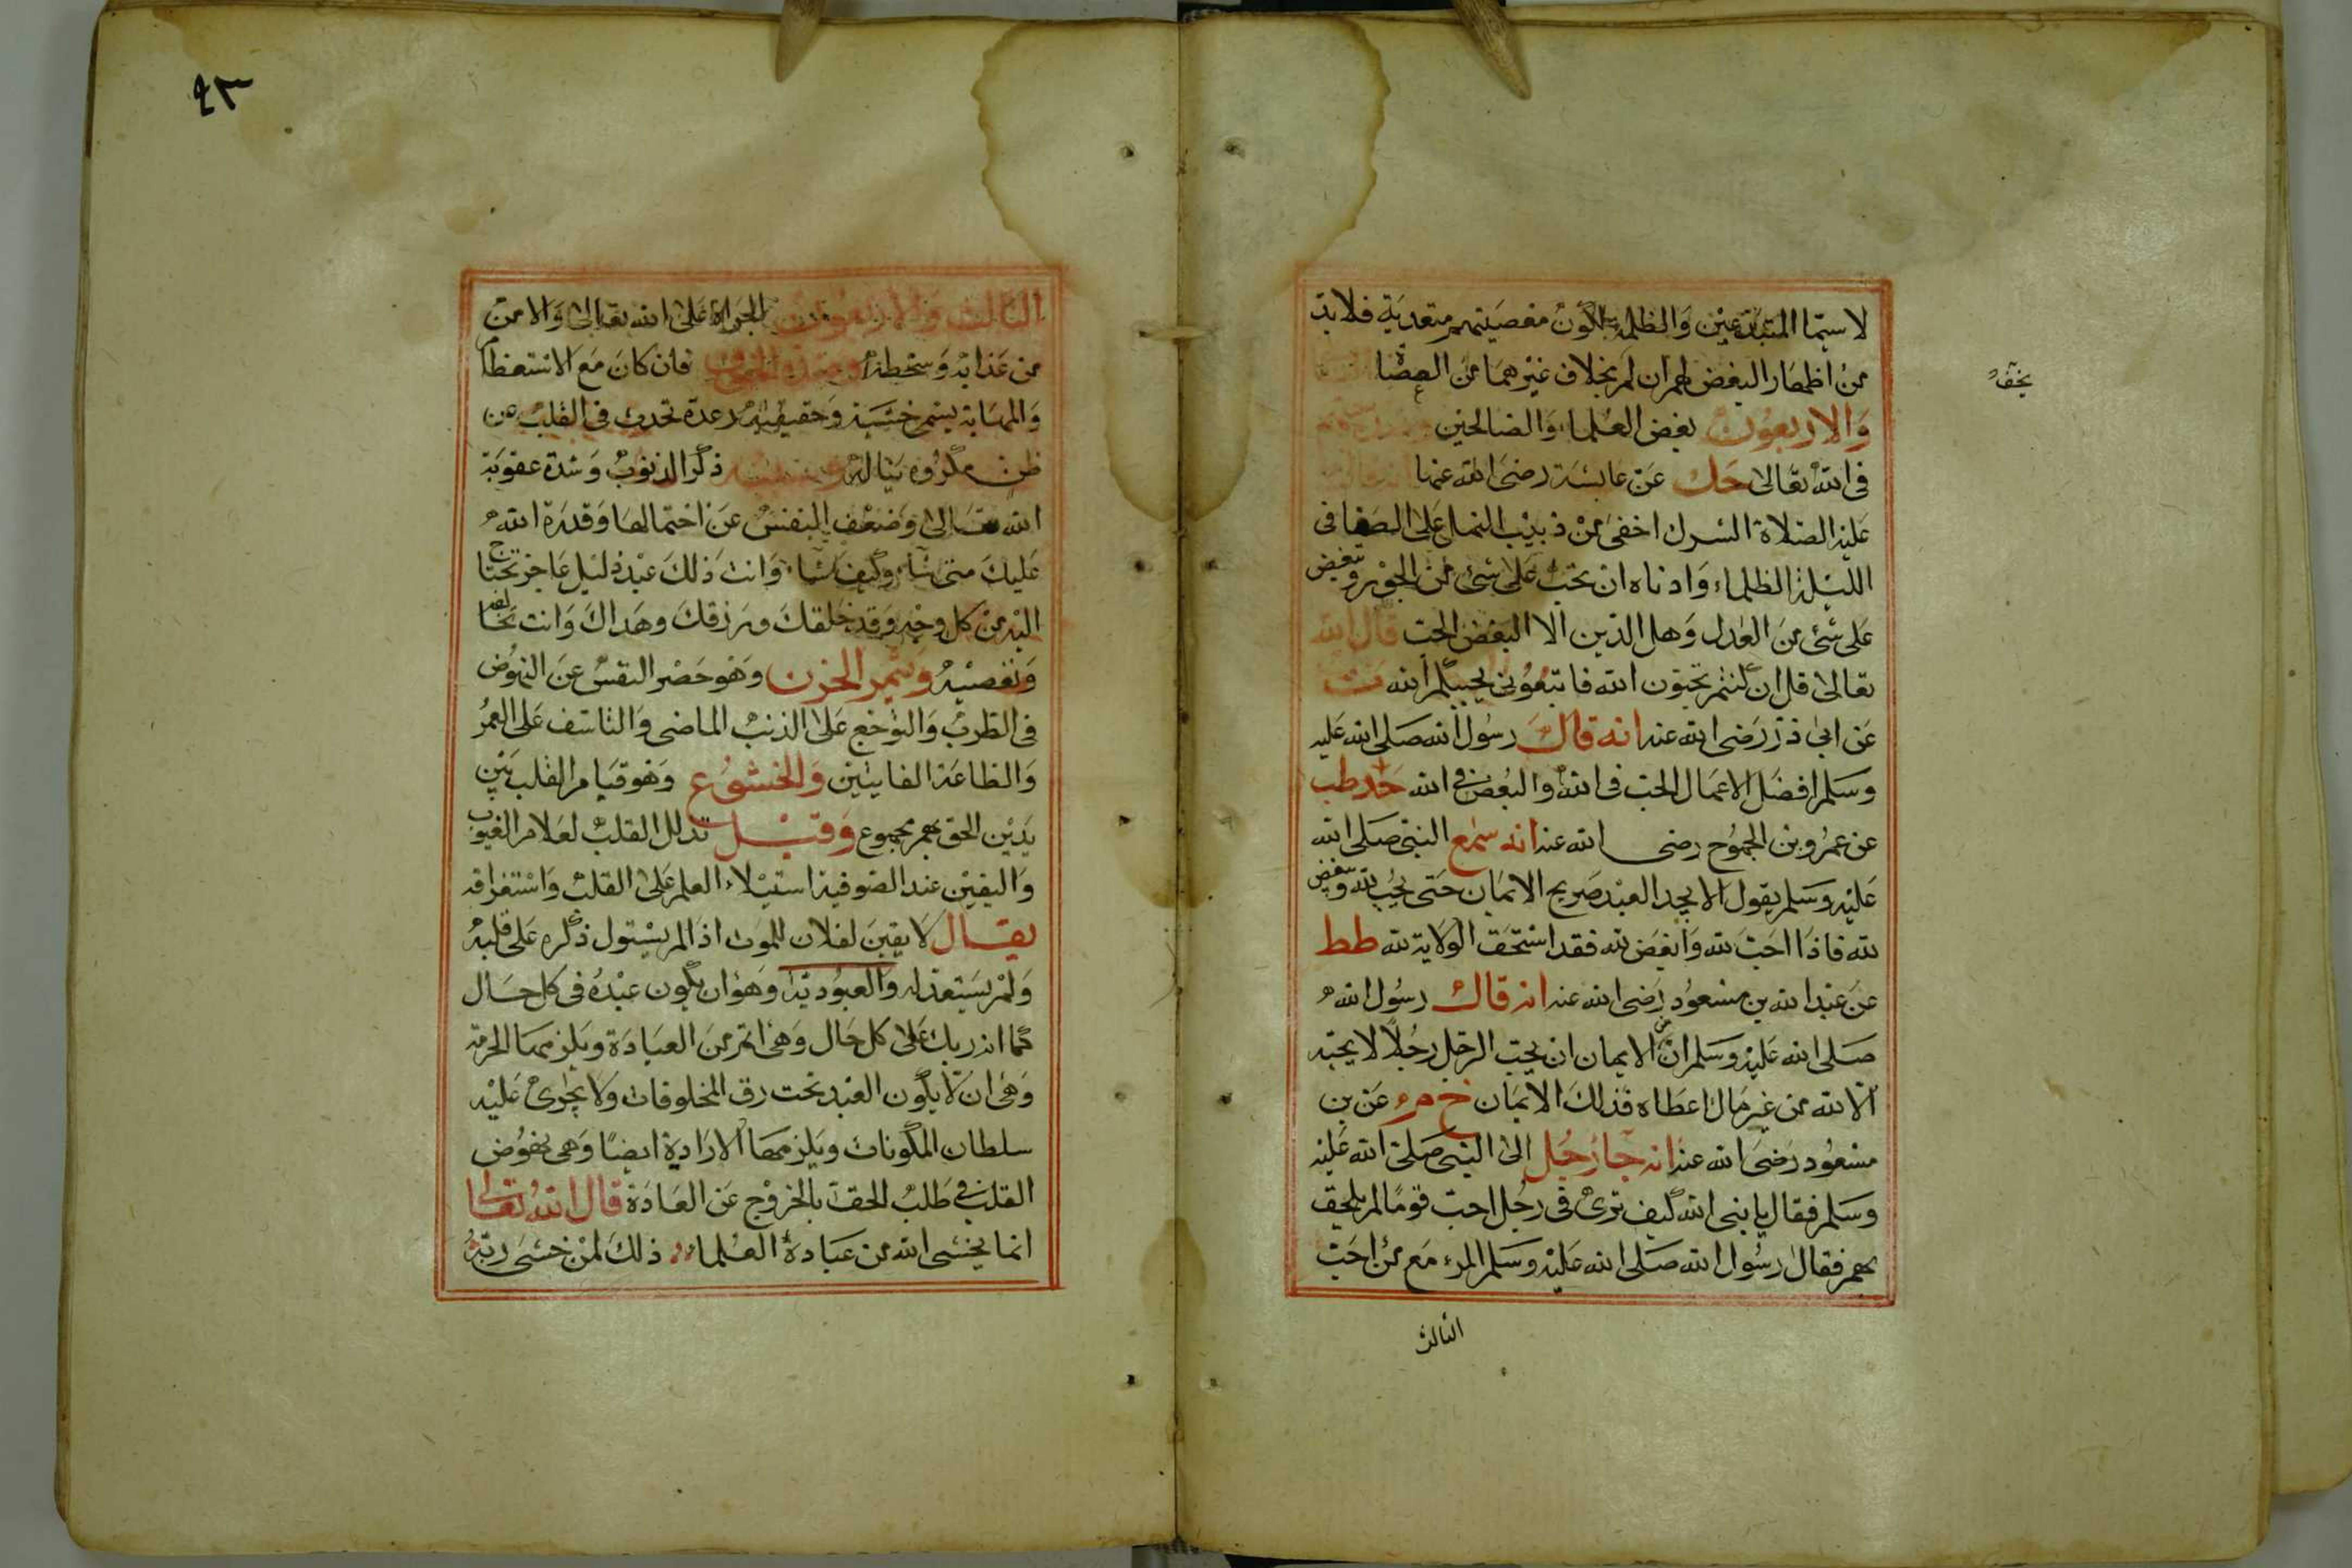 لا سيما المبتدعين والظلمة لكون معصيتهم متعدية فلا بد
من اظهار البغض لهم ان لم يخف بخلاف غيرهما من العصاة
والاربعون بغض العلماء والصالحين
في الله تعالى حك عن عايشة رضى الله عنها
عليه الصلاة الشرك اخفى من دبيب النمل على الصفا في
الليلة الظلماء وادناه ان تحب على شئ من الجور وتبغض
على شئ من العدل وهل الدين الا البغض الحب قال الله
تعالى قل ان كنتم تحبون الله فاتبعوني يحببكم الله
عن ابي ذر رضى الله عنه انه قال رسول الله صلى الله عليه
وسلم افضل الاعمال الحب في الله والبغض في الله حد طب
عن عمرو بن الجموح رضى الله عنه انه سمع النبي صلى الله
عليه وسلم يقول لا يجد العبد صريح الايمان حتى يحب لله ويبغض
لله فاذا احب لله وابغض لله فقد استحق الولاية لله طط
عن عبد الله بن مسعود رضى الله عنه انه قال رسول الله
صلى الله عليه وسلم ان من الايمان ان يحب الرجل رجلا لا يحبه
الا لله من غير مال اعطاه فذلك الايمان خ م عن بن
مسعود رضى الله عنه انه جاء رجل الى النبي صلى الله عليه
وسلم فقال يا نبي الله كيف ترى في رجل احب قوما لم يلحق
بهم فقال رسول الله صلى الله عليه وسلم المرء مع من احب
الثالث
٤٣
الثالث والاربعون الجراة على الله تعالى والامن
من عذابه وسخطه فان كان مع الاستعظام
والمهابة يسمى خشية وحقيقته رعدة تحدث في القلب عن
ظن مكروه يناله ذكر الذنوب وشدة عقوبة
الله تعالى وضعف النفس عن احتمالها وقدرة الله
عليك متى شاء وكيف شاء وانت ذلك عبد ذليل عاجز تحتاج
اليه من كل وجه وقد خلقك ورزقك وهداك وانت تخالفه
وتعصيه وثم الحزن وهو حصر النفس عن النهوض
في الطرب والتوجع على الذنب الماضي والتاسف على العمر
والطاعة الفايتين والخشوع وهو قيام القلب بين
يدين الحق بهم مجموع وقيل تذلل القلب لعلام الغيوب
واليقين عند الصوفية استيلاء العلم على القلب واستغراقه
يقال لا يقين لفلان للموت اذا لم يستول ذكره على قلبه
ولم يستعد له والعبودية وهو ان يكون عبده في كل حال
كما انه ربك على كل حال وهي اتم من العبادة ويلزمها الحرمة
وهي ان لا يكون العبد تحت رق المخلوقات ولا يجرى عليه
سلطان المكونات ويلزمها الارادية ايضا وهي نهوض
القلب في طلب الحق بالخروج عن العادة قال الله تعالى
انما يخشى الله من عبادة العلماء ذلك لمن خشى ربه